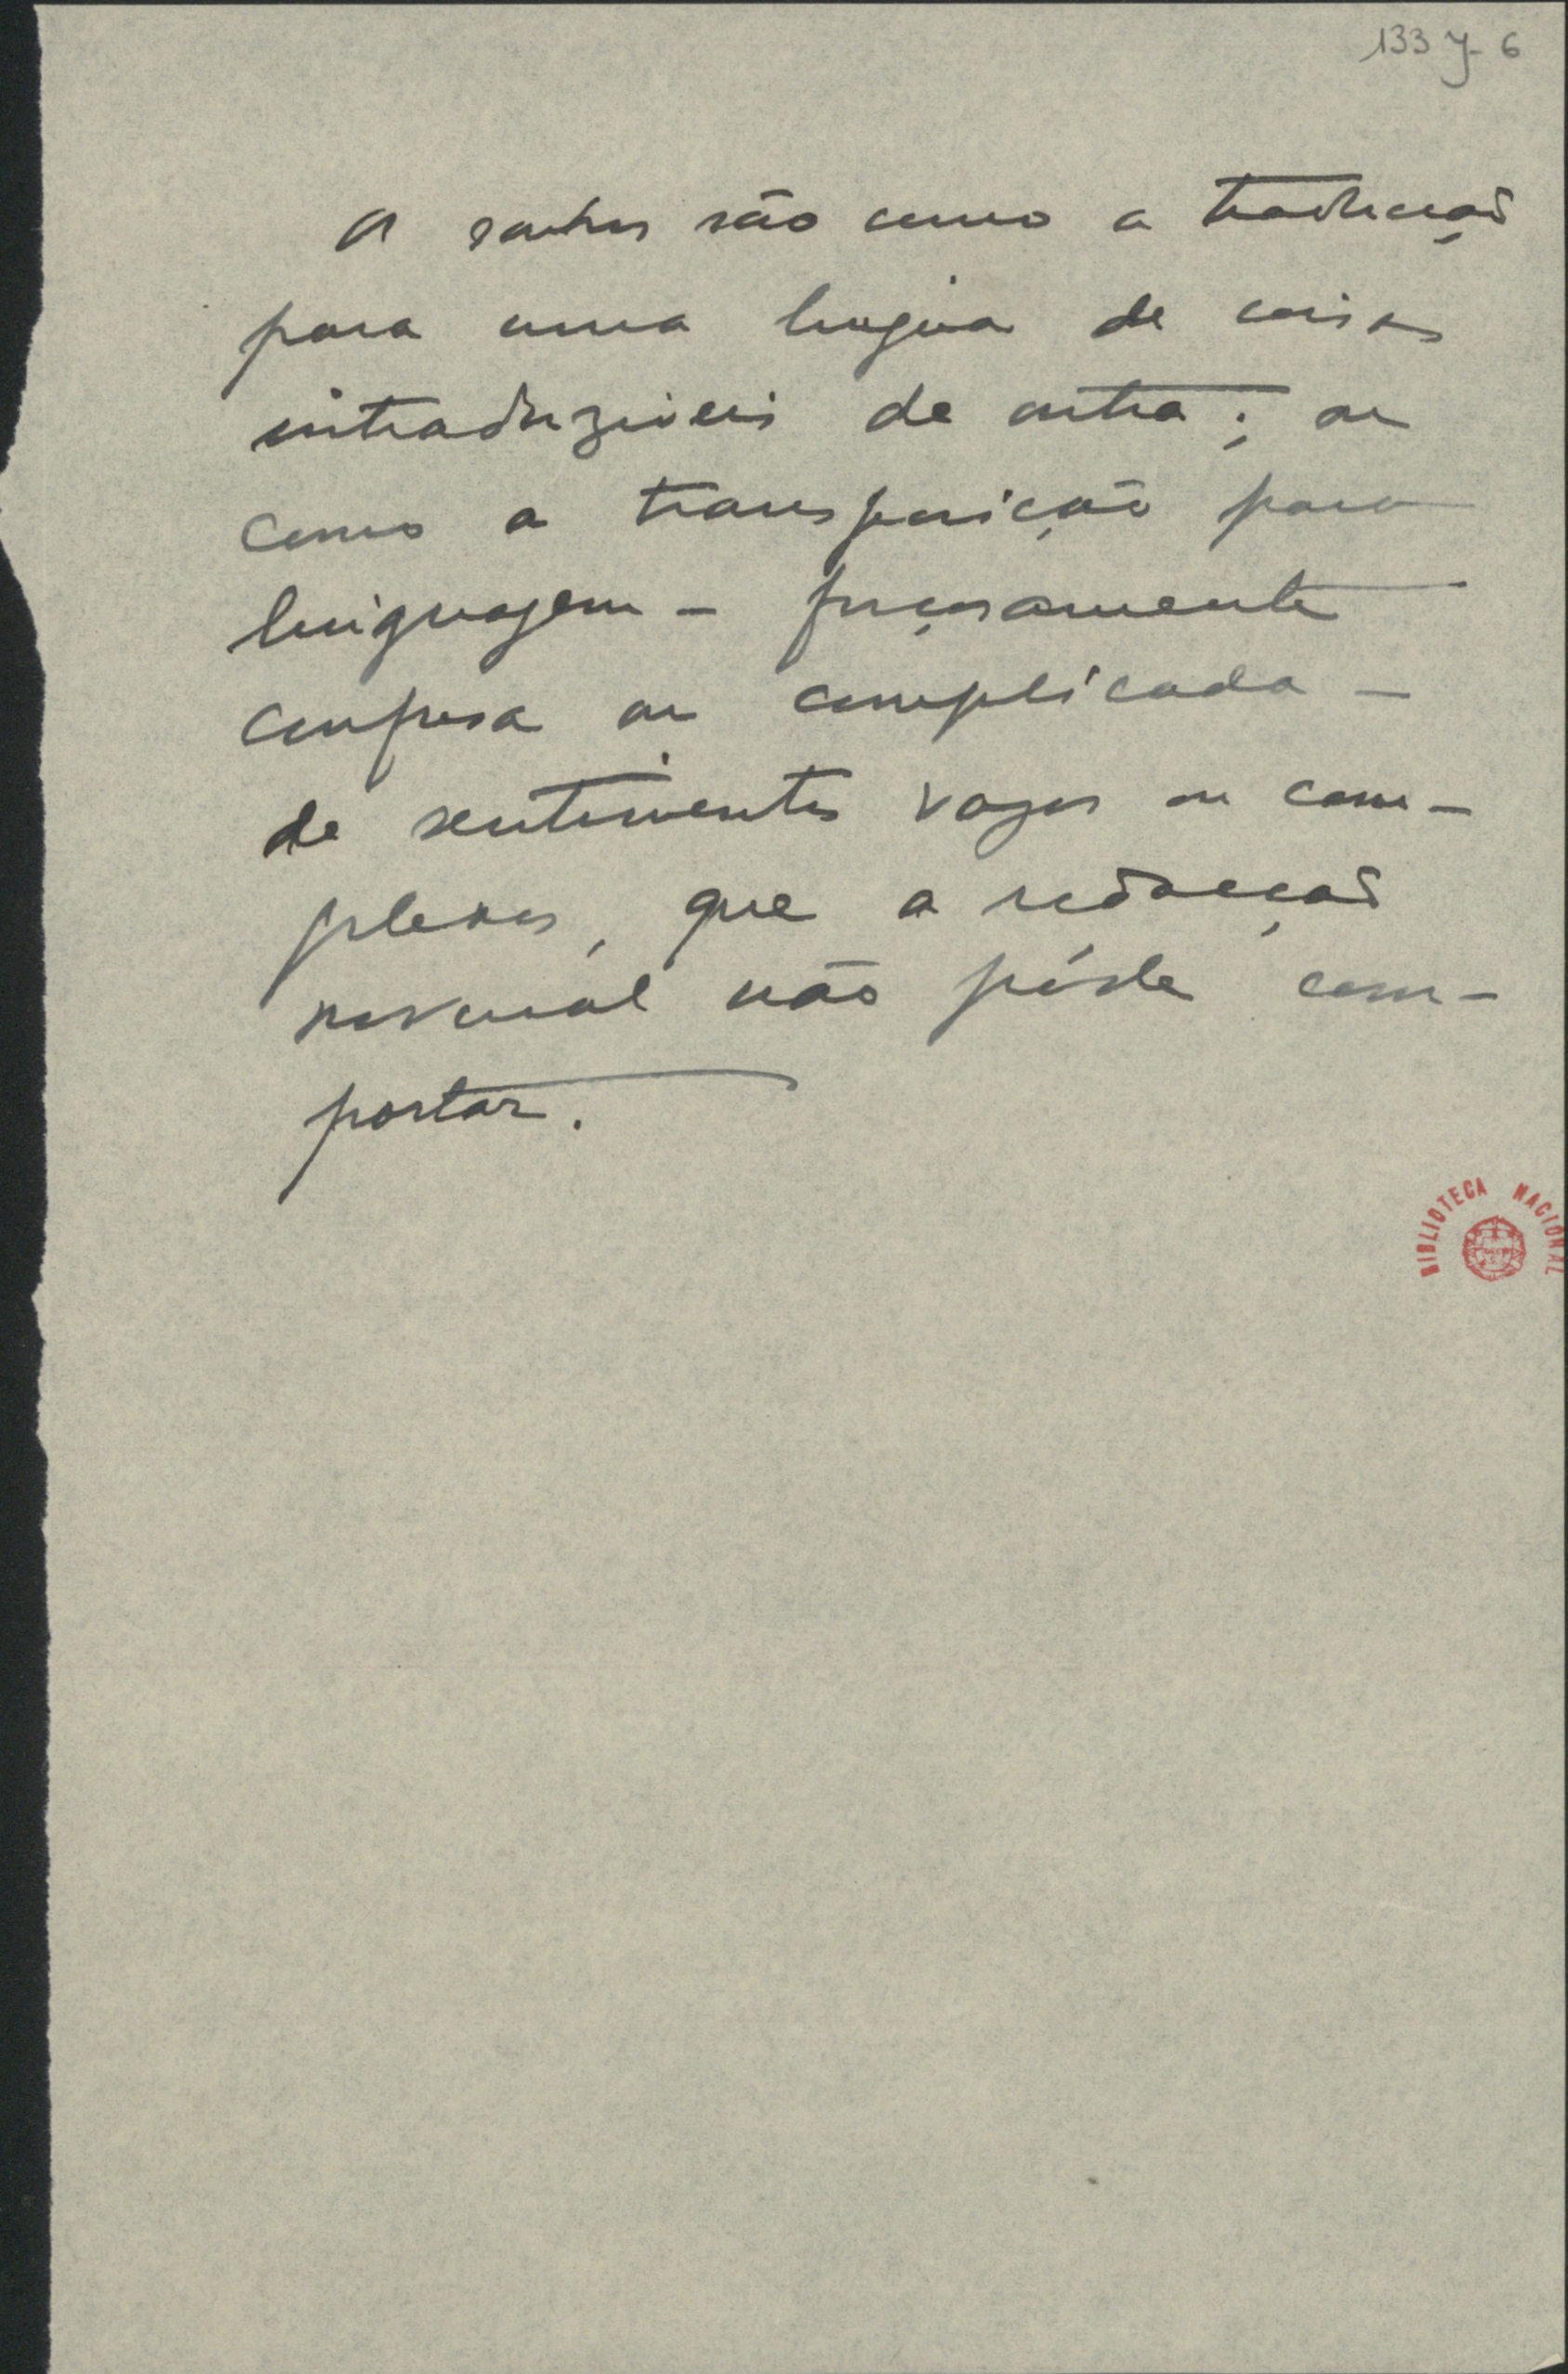 133 J- 6
Os sonhos são como a traducção
para uma lingua de coisas
intraduziveis de outra; ou
como a transposição para
linguagem - forçosamente
confusa ou complicada -
de sentimentos vagos ou com-
plexos, que a redacção
normal não póde com-
portar.
BIBLIOTECA NACIONAL